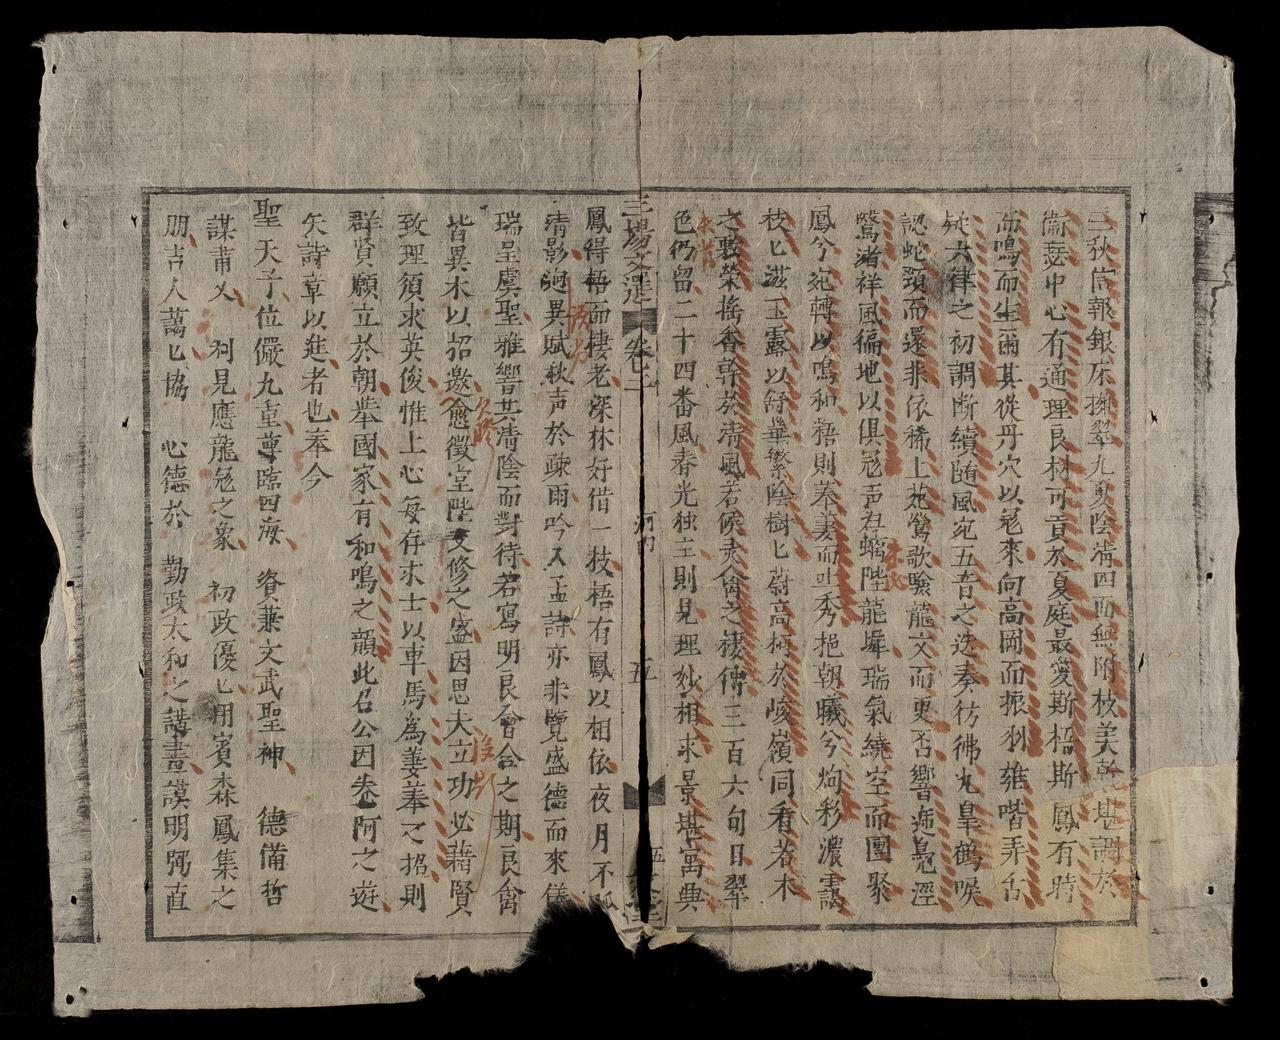 三秋信報銀床擁翠九夏陰滿四面無附枝美幹堪調於
衞瑟中心有通理良材可貢於夏庭最愛斯梧斯鳳有時
而鳴而生爾其從丹穴以冕來向高岡而振羽雍喈弄舌
疑六律之初調断續随風宛五音之迭奏彷彿九皐鶴唳
認蛇頸而還非依稀上苑鶯歌驗龍文而更否響遍鳧涇
鷖渚祥風徧地以俱冕声在螭陛龍墀瑞氣繞空而團聚
鳳兮宛轉以鳴和梧則菶萋而吐秀挹朝曦兮炯彩濃靄
枝匕滋玉露以舒華繁陰樹匕蔚高柯於峻嶺同看若木
之敷榮搖香幹於清風若候灵禽之棲傳三百六旬日翠
色仍留二十四番風春光独主則見理妙相求景堪寓典
三場文選 卷三 河内 五
鳳得梧而棲老深林好借一枝梧有鳳以相依夜月不孤
清影迥異賦秋声於疎雨吟入孟詩亦非覽盛德而來儀
瑞呈虞聖雅響共清陰而對待若寫明良會合之期良禽
皆異木以招邀愈徵堂陛交修之盛因思夫立功必藉賢
致理須求英俊惟上心每存求士以車馬為萋菶之招則
群賢願立於朝举國家有和鳴之韻此召公因卷阿之遊
矢詩章以進者也奉今
聖天子位儼九重尊臨四海 資兼文武聖神 德備哲
謀肅乂 利見應龍冕之象 初政優匕用賓森鳳集之
朋吉人藹匕協 心德於 勤政太和之講書謨明弼直